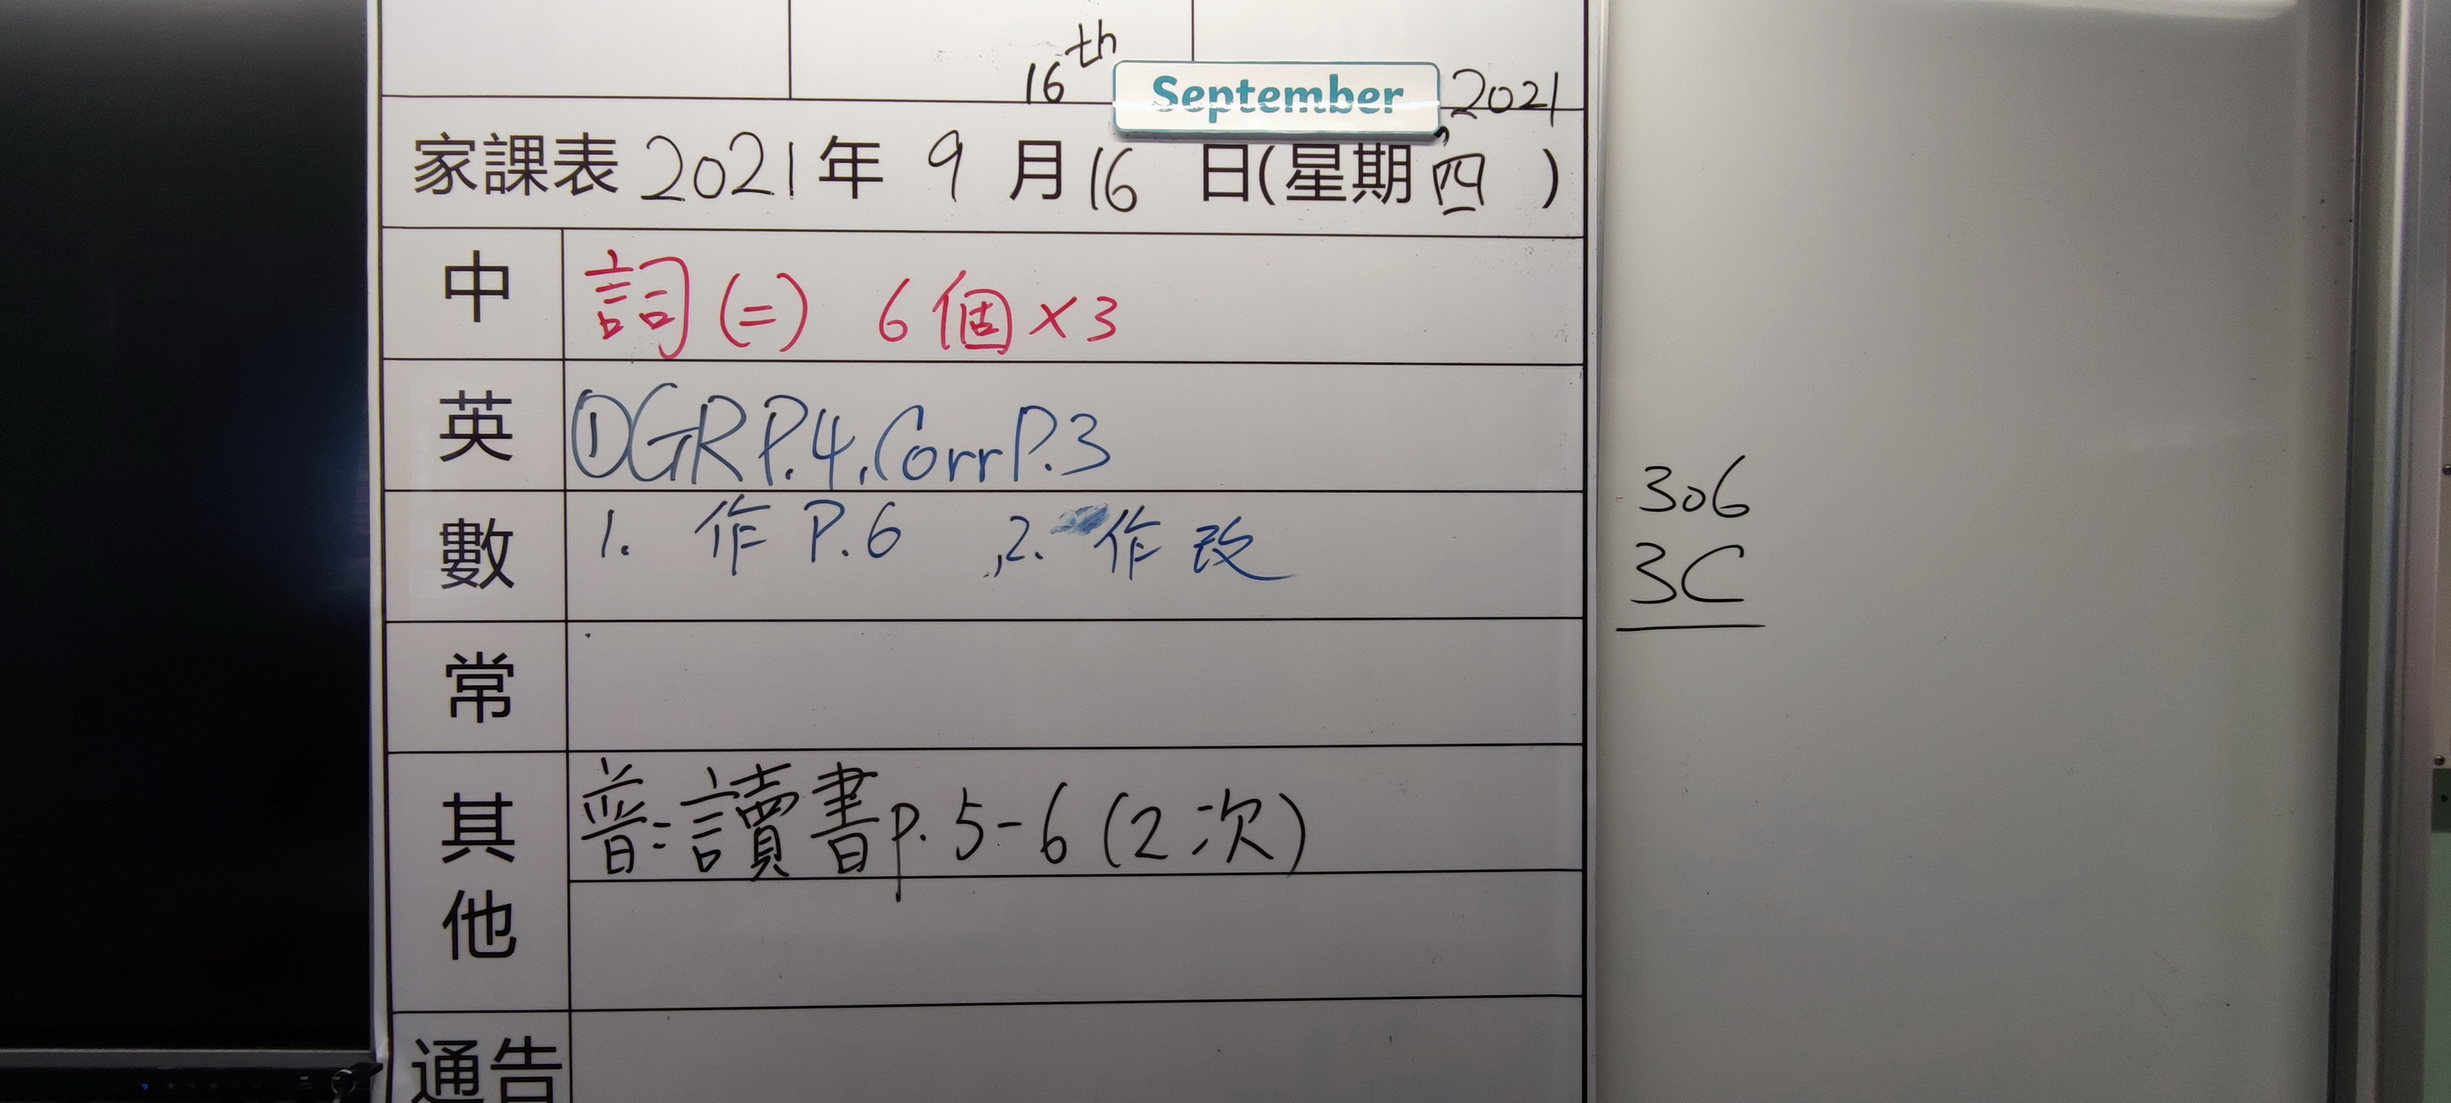 16th September, 2021
家課表 2021年 9 月 16 日(星期四)
中 詞(二) 6個×3
英 ①GR P.4, Corr P.3
數 1. 作 P.6 , 2. 作改
常
其他 普:讀書p.5-6(2次)
通告
306
3C